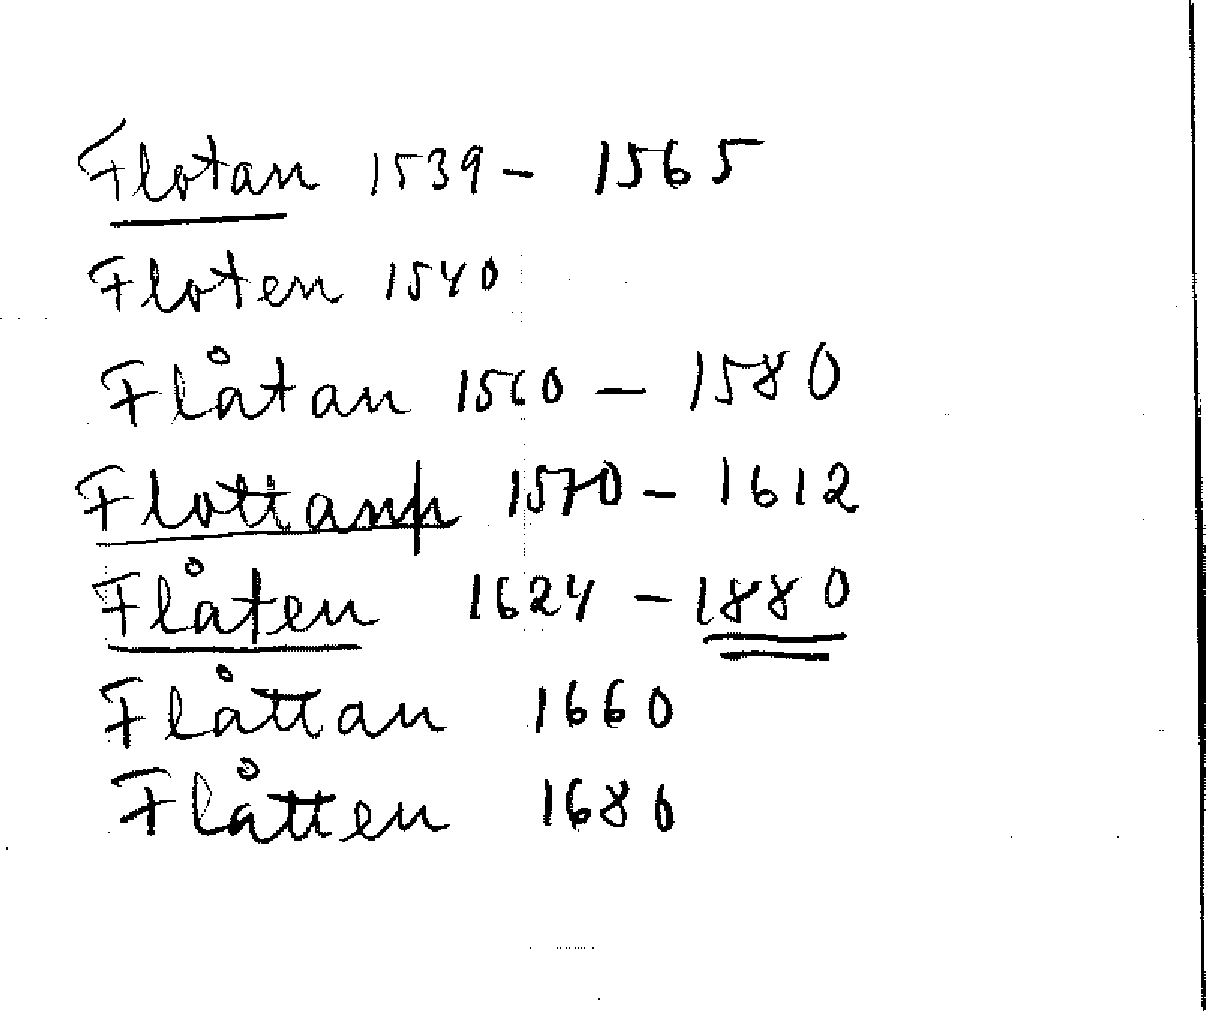 Flotan 1539 - 1565
Floten 1540
Flåtan 1560 - 1580
Flottann 1570 - 1612
Flåten 1624 - 1880
Flåttan 1660
Flåtten 1680